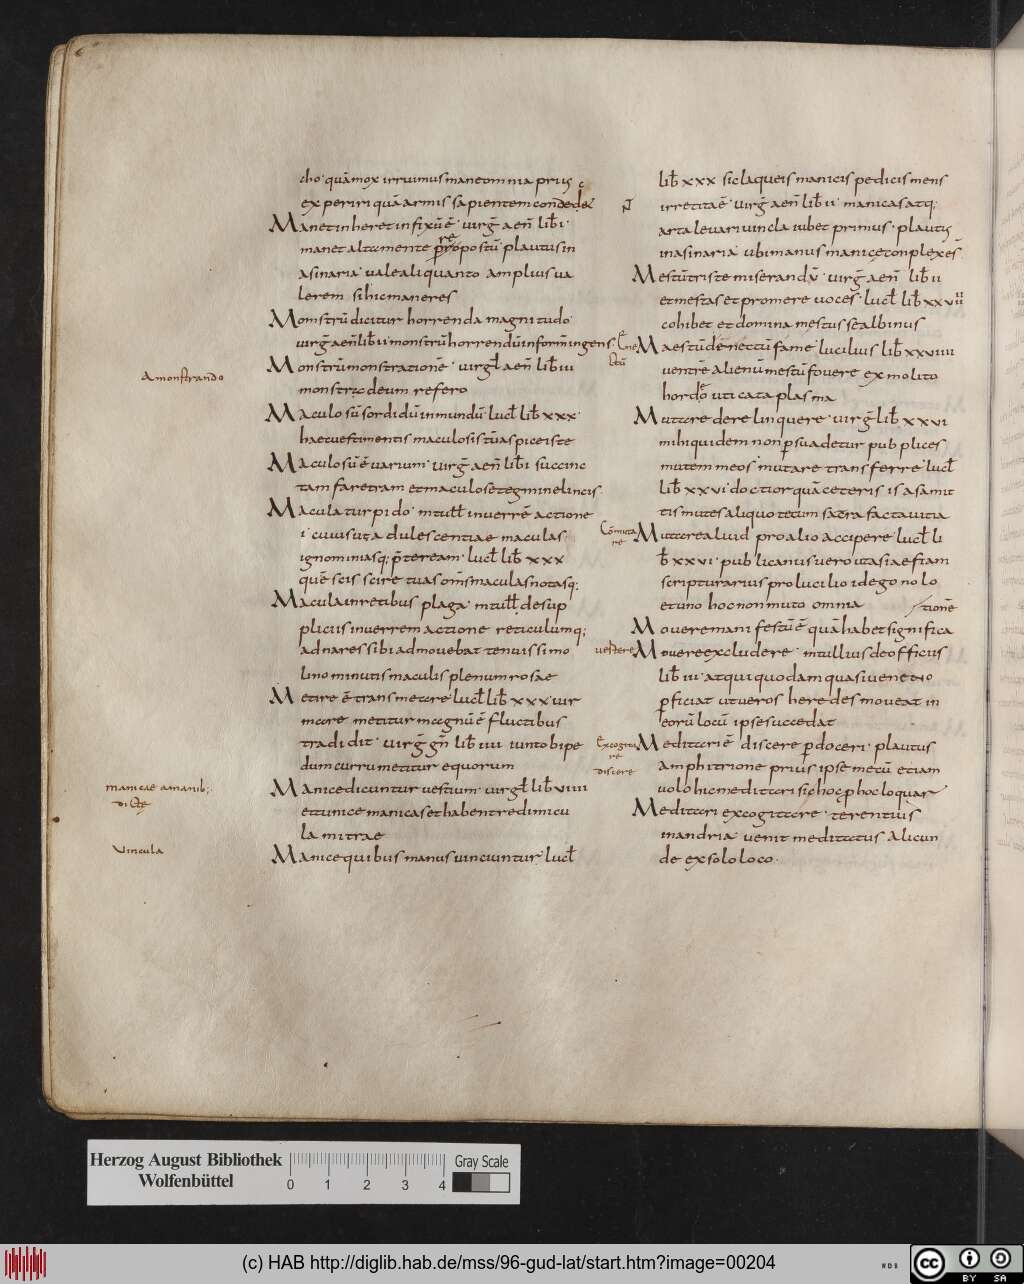 cho· quāmox irruimus maneom nia prius
experiri quā armis sapientem condecet
Manet inheret infixū ē· virg̅ aen̅ lib̅ i·
manet alta mente p̅ropostū plautus in
asinaria· vale aliquanto amplius va
lerem si hic maneres
Monstrū dicitur horrenda magnitudo·
virg̅ aen̅ lib̅ ii monstrū horrendū inform̅ ingens·
Monstrū monstratione· virgl̅ aen̅ lib̅ iii
monstra deum refero
Amonstrando
Maculosū sordidū inmundū· lucl̅ lib̅ xxx·
haec vestimentis maculosis tū aspice iste
Maculosū ē varium· virg̅ aen̅ lib̅ i succinc
tam faretram et maculose tegmine lincis
Macula turpido· m tull̅ in verrē actione
i· cuius uta dulescentiae maculas·
ignominiasq; p̅teream· lucl̅ lib̅ xxx
quē scis scire tuas om̅s maculas notasq;
Macula in retibus plaga· m tull̅ de sup
pliciis in verrem actione reticulumq;
ad nares sibi admovebat tenuissimo
lino minutis maculis plenum rosae
Metire ē trans meare· lucl̅ lib̅ xxx· vir
mare metitur magnū ē fluctibus
tradidit· virg̅ gn̅ lib̅ iiii iunto bipe
dum curru metitur equorum
Manice dicuntur vestium· virgl̅ lib̅ viiii
et tunice manicas et habent redimicu
la mitrae
Manice quibus manus vinciuntur· lucl̅
manicae amanib;·
dictę
Vincula
lib̅ xxx sic laqueis manicis pedicis mens
irretita ē· virg̅ aen̅ lib̅ ii· manicas atq;
arta levari vincla iubet primus· plautus
in asinaria· ubi manus manice conplexes
Mestū triste miserandū· virg̅ aen̅ lib̅ ii
et mestas et promere voces· lucl̅ lib̅ xxvii
cohibet et domina mestus se albinus
Maestū de nectū fame· lucilius lib̅ xxviiii
ventrē alienū mestū fovere ex molito
hordeo uti cataplasma
Mutare derelinquere· virg̅ lib̅ xxvi
mihi quidem non p̱suadetur pub plices
mutem meos· mutare transferre· lucl̅
lib̅ xxvi· doctior quā ceteris is a s amit
tis mutes aliquo tecum sacra facta vitia
Com̅uta
re
Mutare aliud pro alio accipere· lucl̅ li
b̅ xxvi· publicanus vero ut asiae fiam
scripturarius pro lucilio id ego nolo
et uno hoc non muto omnia
tionē
Movere manifestū ē quā habet significa
vertere
Movere excludere· m tullius de officiis
lib̅ iii· atqui quodam quasi veneno
p̱ficiat ut veros heredes moveat in
eorū locū ipse succedat
Excogita
re
discere
Meditari ē discere p̱doceri· plautus
amphitrione prius ipse mecū etiam
volo hic meditari sic hoc p̱hoc loquar
Meditari excogitare· terentius
in andria· venit meditatus alicun
de ex solo loco·
Herzog August Bibliothek
Wolfenbüttel
0 1 2 3 4
Gray Scale
(c) HAB http://diglib.hab.de/mss/96-gud-lat/start.htm?image=00204
WDB
cc BY SA